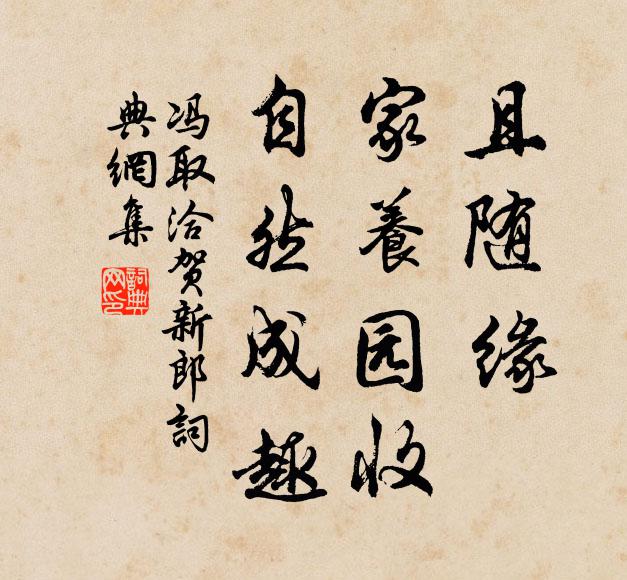 且随缘
家養园收
自然成趣
冯取洽贺新郎詞
典網集
詞典
网印